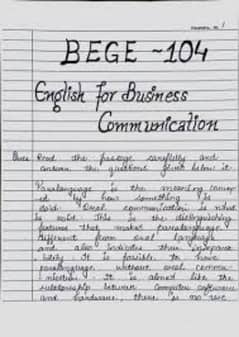 BEGE - 104
English for Business
Communication
Read the passage carefully and
answer the questions given below it.
Paralanguage is the meaning
by how something is
said. Oral communication is what
is said. This is the distinguishing
features that makes paralanguage
different from oral language
and also indicates their
It is possible to have
paralanguage without oral
It is almost like the
relationship between computer software
and hardware, there is no use